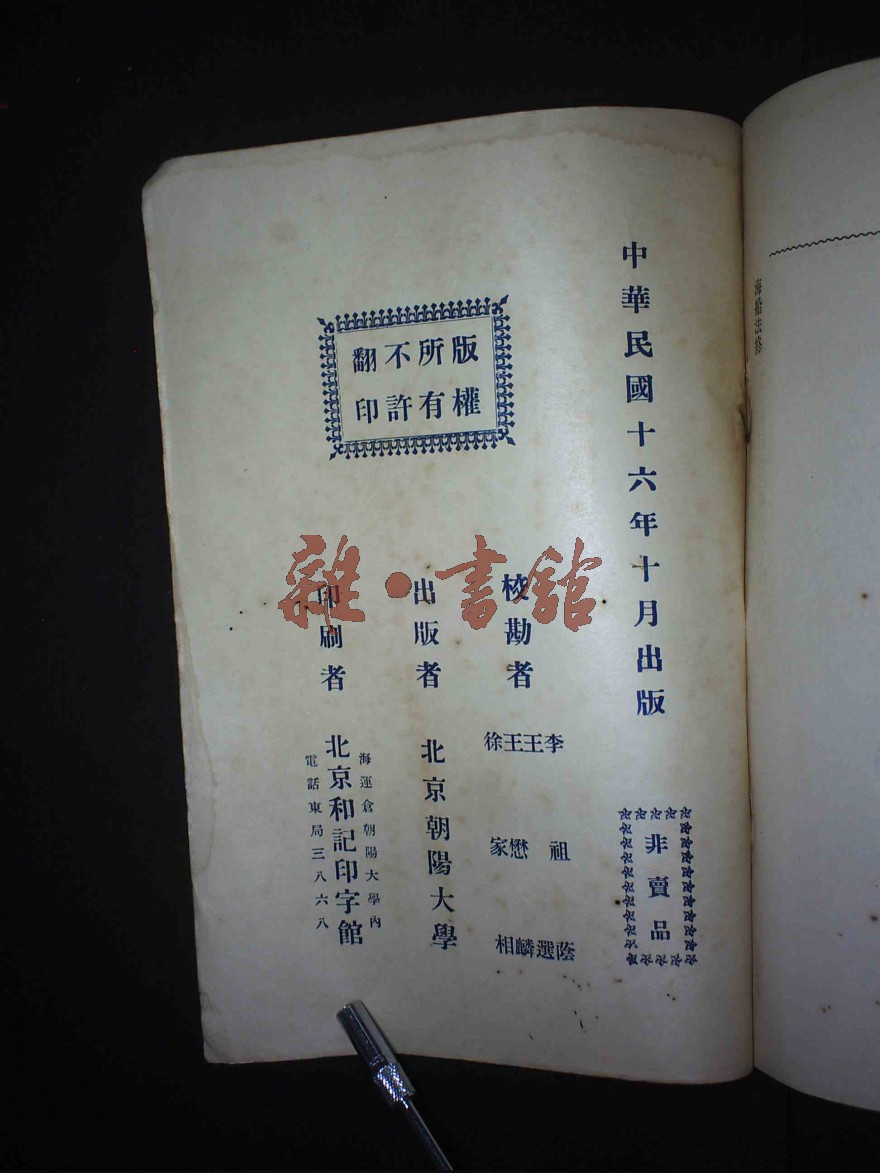 海船法終
中華民國十六年十月出版
非賣品
版權所有
不許翻印
校勘者
李祖蔭
王選
王懋麟
徐家相
出版者 北京朝陽大學
印刷者 北京和記印字館
海運倉朝陽大學內
電話東局三八六八
雜·書館